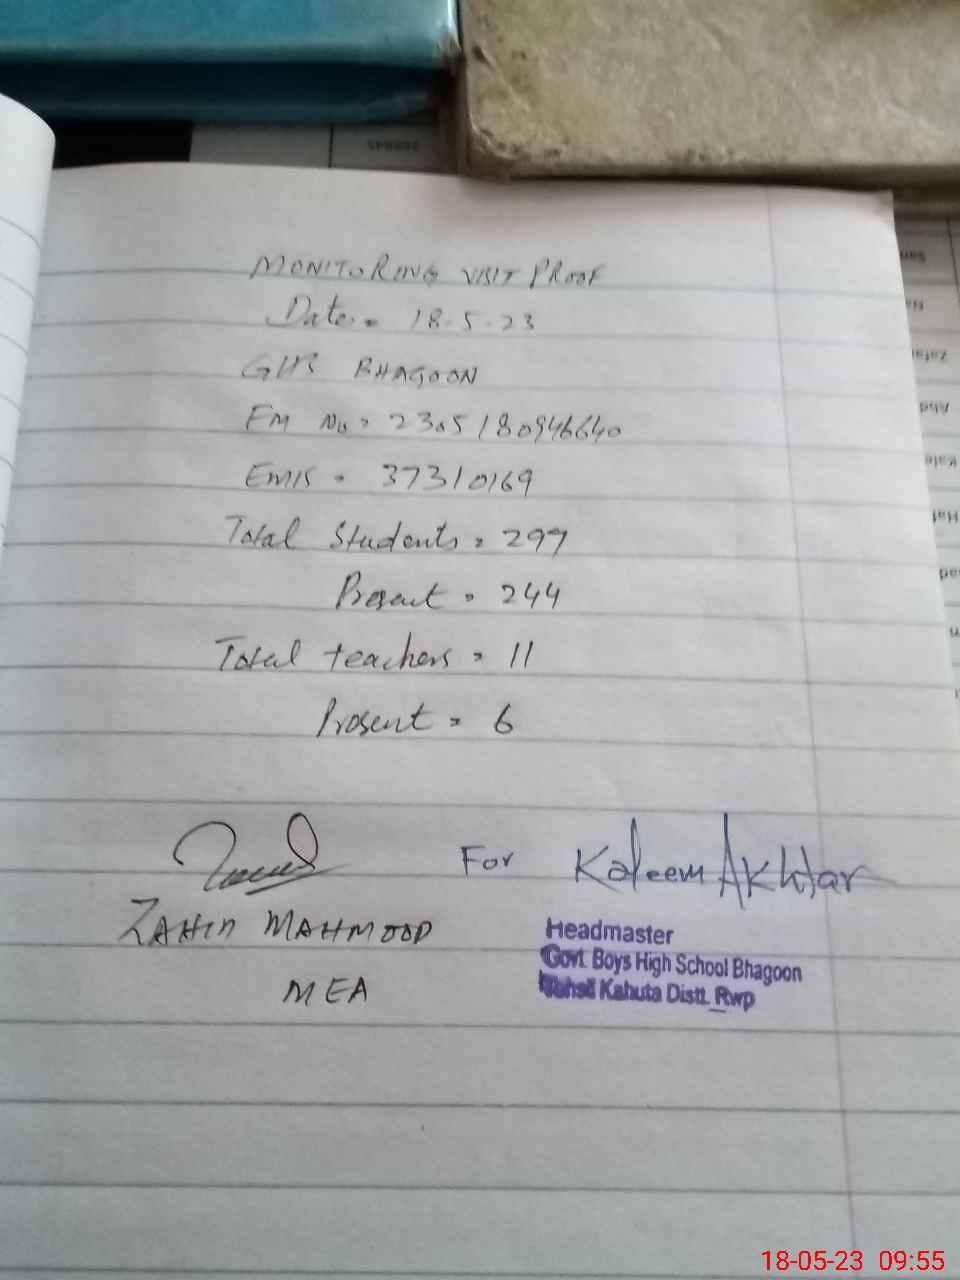 268845
MONITORING VISIT PROOF
Date = 18-5-23
GHS BHAGOON
FM No = 2305180946640
EMIS = 37310169
Total Students = 297
Present = 244
Total teachers = 11
Present = 6
For Kaleem Akhtar
ZAHID MAHMOOD
MEA
Headmaster
Govt. Boys High School Bhagoon
Tehsil Kahuta Distt. Rwp
18-05-23 09:55